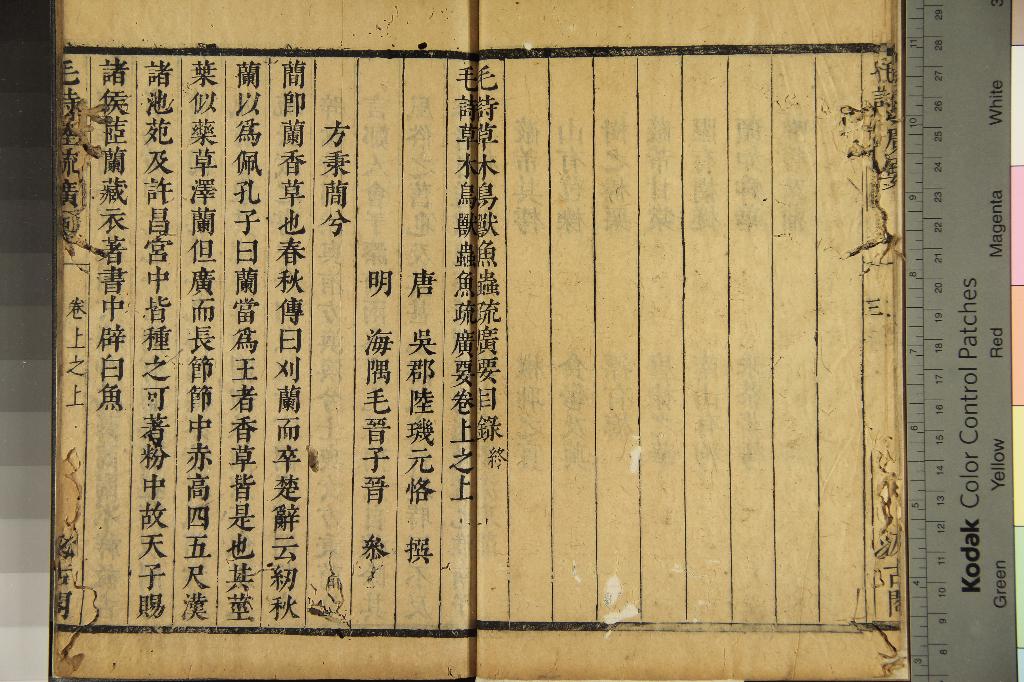 毛詩草木鳥獸魚蟲疏廣要目錄終
三
毛詩草木鳥獸蟲魚疏廣要卷上之上
唐 吳郡陸璣元恪 撰
明 海隅毛晉子晉 叅
方秉蕑兮
蕑卽蘭香草也春秋傳曰刈蘭而卒楚辭云紉秋
蘭以爲佩孔子曰蘭當爲王者香草皆是也其莖
葉似藥草澤蘭但廣而長節節中赤高四五尺漢
諸池苑及許昌宮中皆種之可著粉中故天子賜
諸侯茝蘭藏衣著書中辟白魚
毛詩陸疏廣
卷上之上
古閣
Kodak Color Control Patches
Green
Yellow
Red
Magenta
White